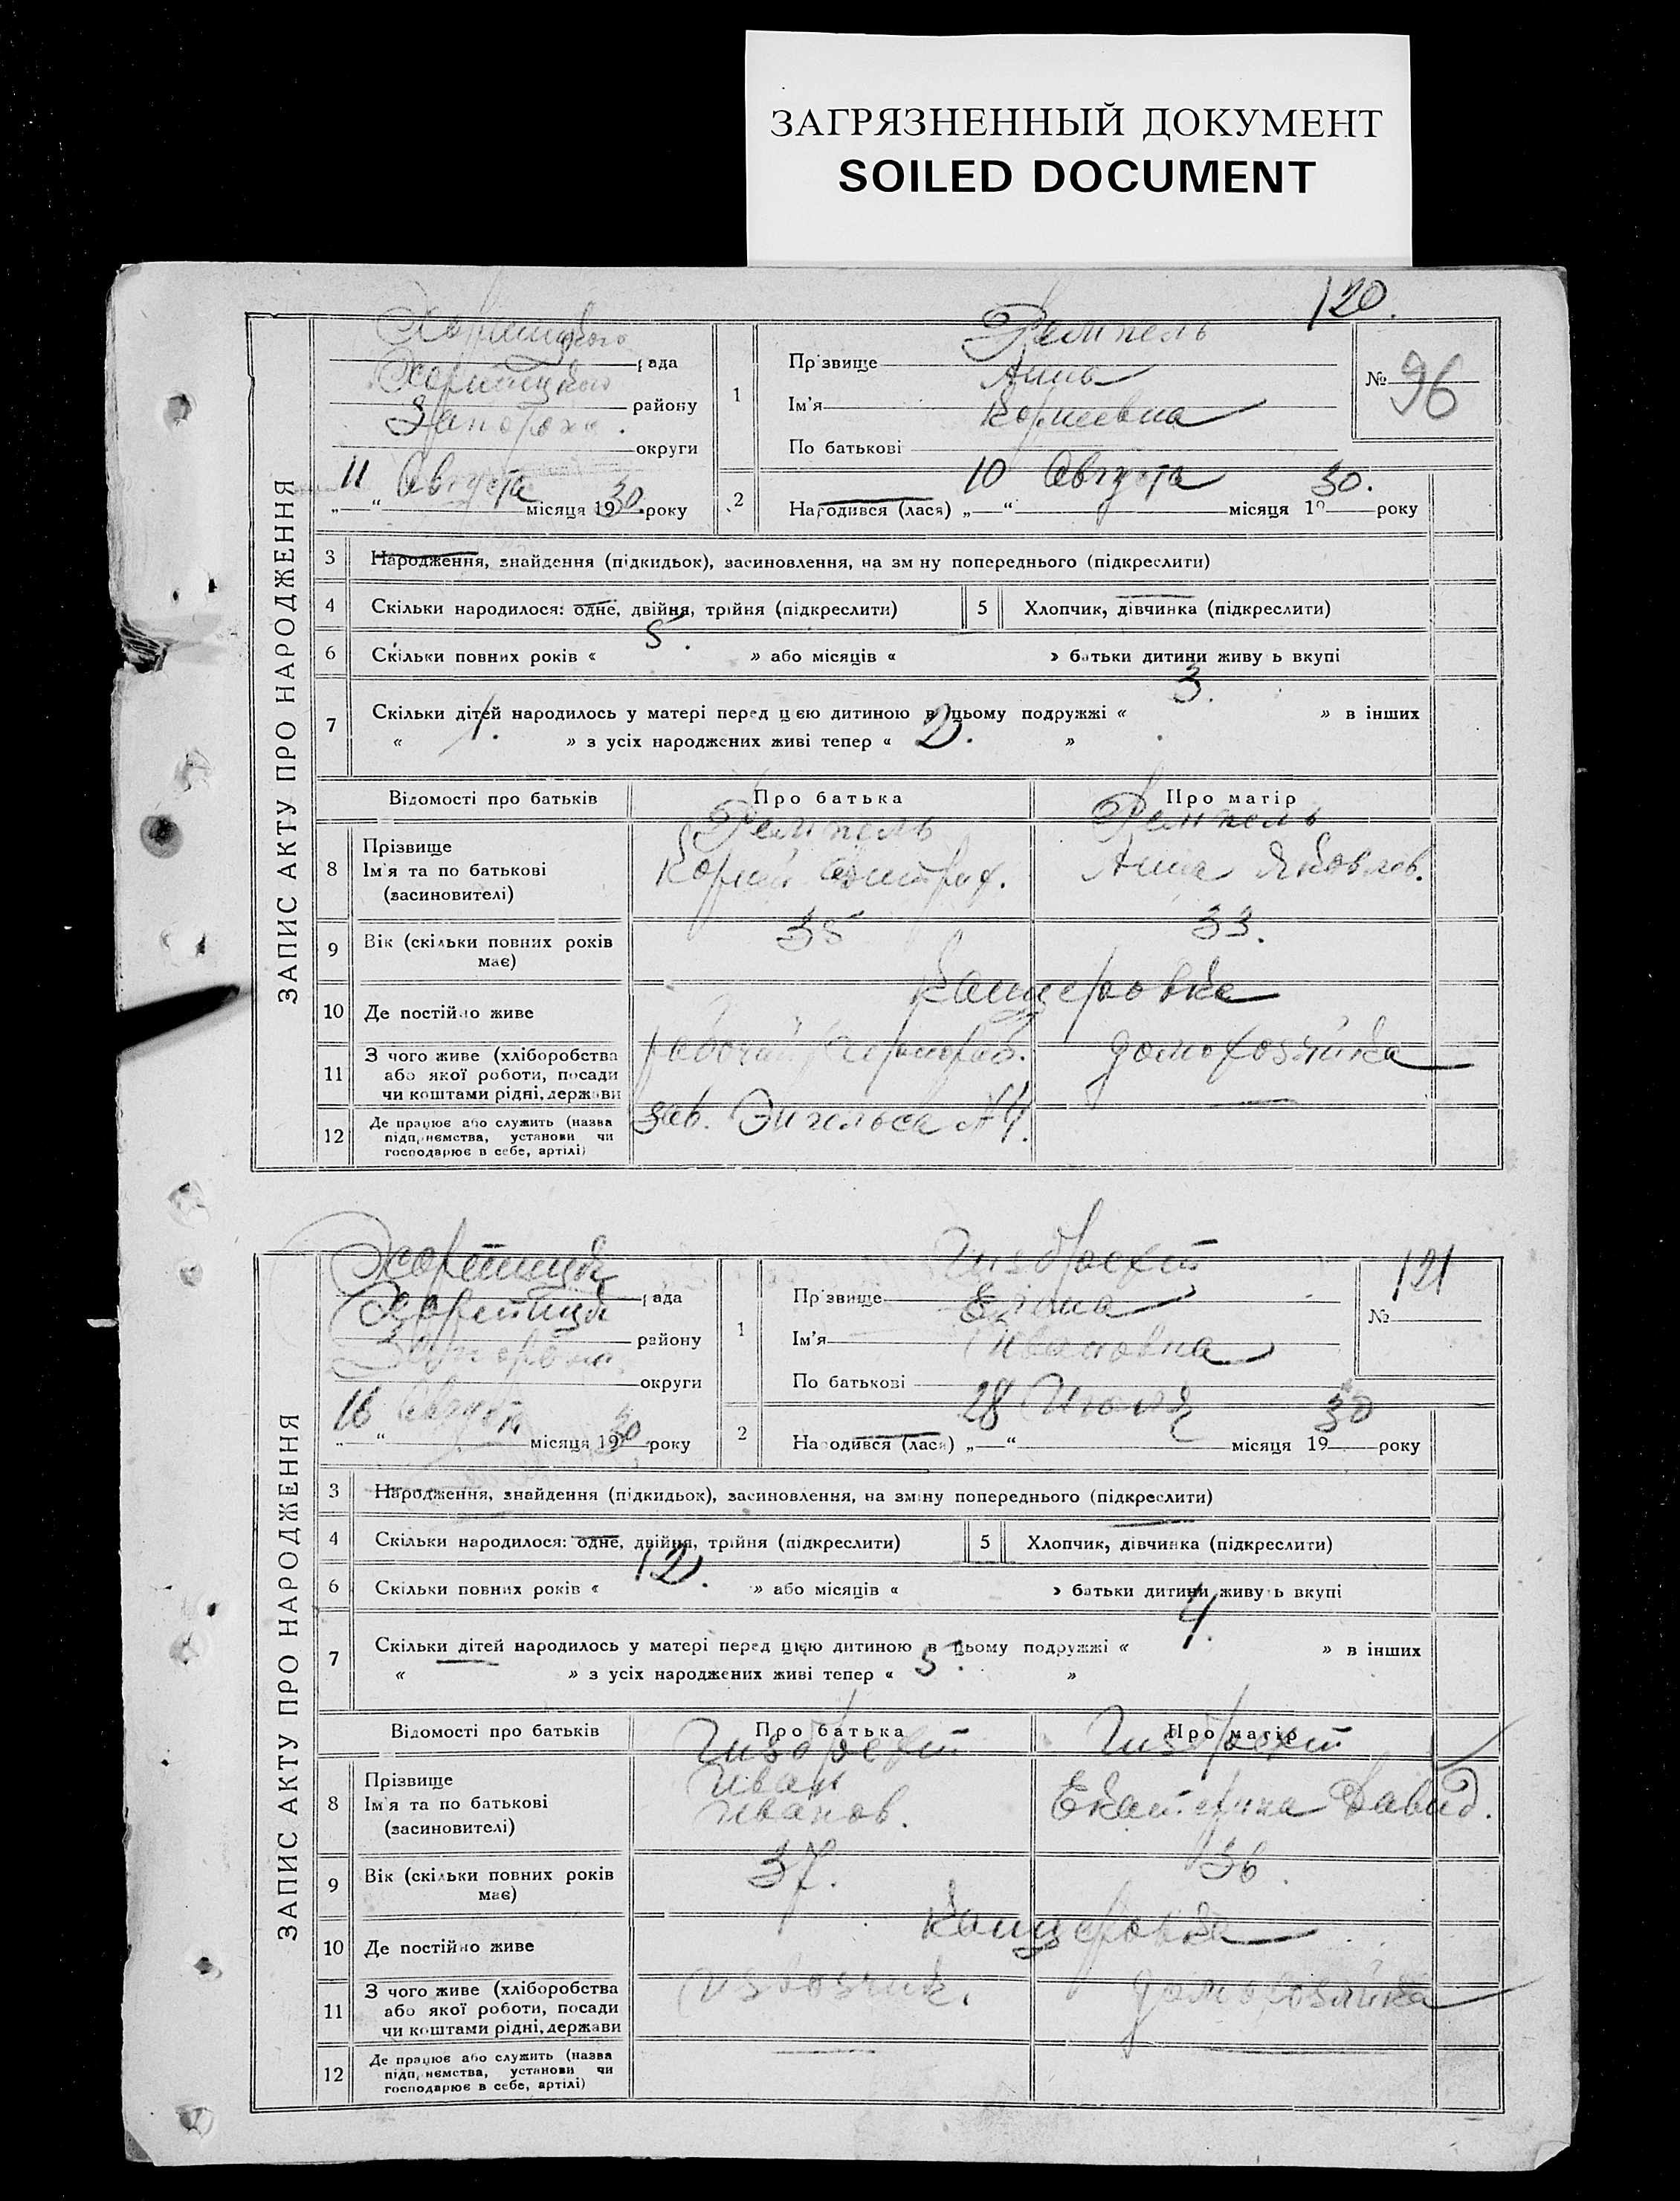 ЗАГРЯЗНЕННЫЙ ДОКУМЕНТ
SOILED DOCUMENT
120.
ЗАПИС АКТУ ПРО НАРОДЖЕННЯ
Хортицкого рада
Хортицкого району
Запорож. округи
„11“ Августа місяця 1930. року
1
Прізвище Ремпель
Ім'я Анна
По батькові Корнеевна
№ 96
2
Народився (лася) „10“ Августа місяця 1930. року
3 Народження, знайдення (підкидьок), засиновлення, на зміну попереднього (підкреслити)
4 Скільки народилося: одне, двійня, трійня (підкреслити) 5 Хлопчик, дівчинка (підкреслити)
6 Скільки повних років « 5. » або місяців « » батьки дитини живуть вкупі
7 Скільки дітей народилось у матері перед цією дитиною в цьому подружжі « 3. » в інших
« 1. » з усіх народжених живі тепер « 2. »
Відомості про батьків Про батька Про матір
8 Прізвище
Ім'я та по батькові
(засиновителі)
Ремпель
Корней
Ремпель
Анна Яковлев.
9 Вік (скільки повних років має) 35 33.
10 Де постійно живе Канцеровка
11 З чого живе (хліборобства або якої роботи, посади чи коштами рідні, держави
рабочий домохозяйка
12 Де працює або служить (назва підприємства, установи чи господарює в себе, артілі)
зав. Энгельса №4.
ЗАПИС АКТУ ПРО НАРОДЖЕННЯ
Хортицк рада
Хортицк району
Запорож. округи
„16“ Августа місяця 1930 року
1
Прізвище Гизбрехт
Ім'я Елена
По батькові Ивановна
№ 121
2
Народився (лася) „28“ Июля місяця 1930 року
3 Народження, знайдення (підкидьок), засиновлення, на зміну попереднього (підкреслити)
4 Скільки народилося: одне, двійня, трійня (підкреслити) 5 Хлопчик, дівчинка (підкреслити)
6 Скільки повних років « 12. » або місяців « » батьки дитини живуть вкупі
7 Скільки дітей народилось у матері перед цією дитиною в цьому подружжі « 4. » в інших
« — » з усіх народжених живі тепер « 5. »
Відомості про батьків Про батька Про матір
8 Прізвище
Ім'я та по батькові
(засиновителі)
Гизбрехт
Иван
Иванов.
Гизбрехт
Екатерина Давид.
9 Вік (скільки повних років має) 37. 36.
10 Де постійно живе Канцеровка
11 З чого живе (хліборобства або якої роботи, посади чи коштами рідні, держави
извозчик. домохозяйка
12 Де працює або служить (назва підприємства, установи чи господарює в себе, артілі)